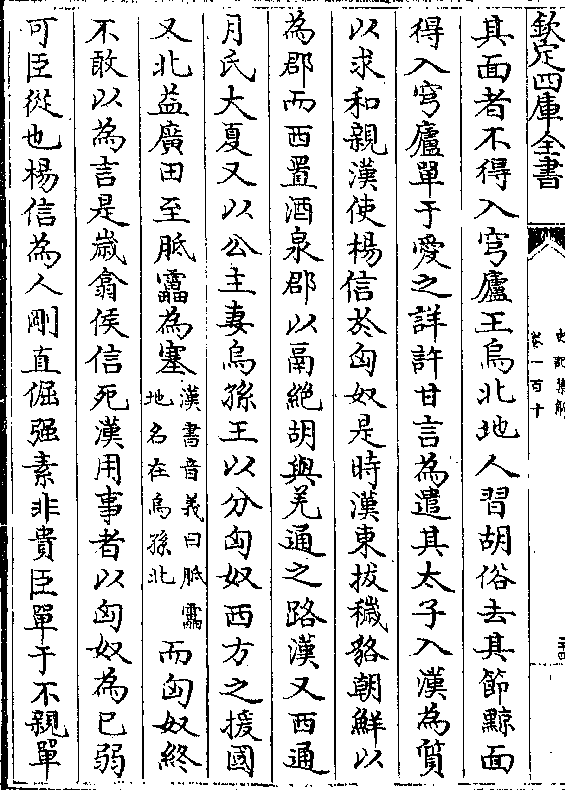 欽定四庫全書
史記集解
卷一百十
二十四
其面者不得入穹廬王烏北地人習胡俗去其節黥面
得入穹廬單于愛之詳許甘言為遣其太子入漢為質
以求和親漢使楊信於匈奴是時漢東拔穢貉朝鮮以
為郡而西置酒泉郡以鬲絶胡與羌通之路漢又西通
月氏大夏又以公主妻烏孫王以分匈奴西方之援國
又北益廣田至胘靁為塞漢書音義曰胘靁地名在烏孫北而匈奴終
不敢以為言是歲翕侯信死漢用事者以匈奴為已弱
可臣從也楊信為人剛直倔强素非貴臣單于不親單